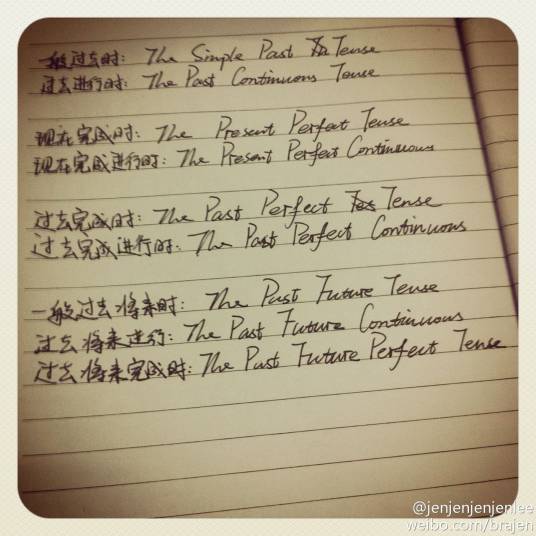 一般过去时: The Simple Past Tense
过去进行时: The Past Continuous Tense
现在完成时: The Present Perfect Tense
现在完成进行时: The Present Perfect Continuous
过去完成时: The Past Perfect Tense
过去完成进行时: The Past Perfect Continuous
一般过去将来时: The Past Future Tense
过去将来进行: The Past Future Continuous
过去将来完成时: The Past Future Perfect Tense
@jenjenjenjenlee
weibo.com/brajen